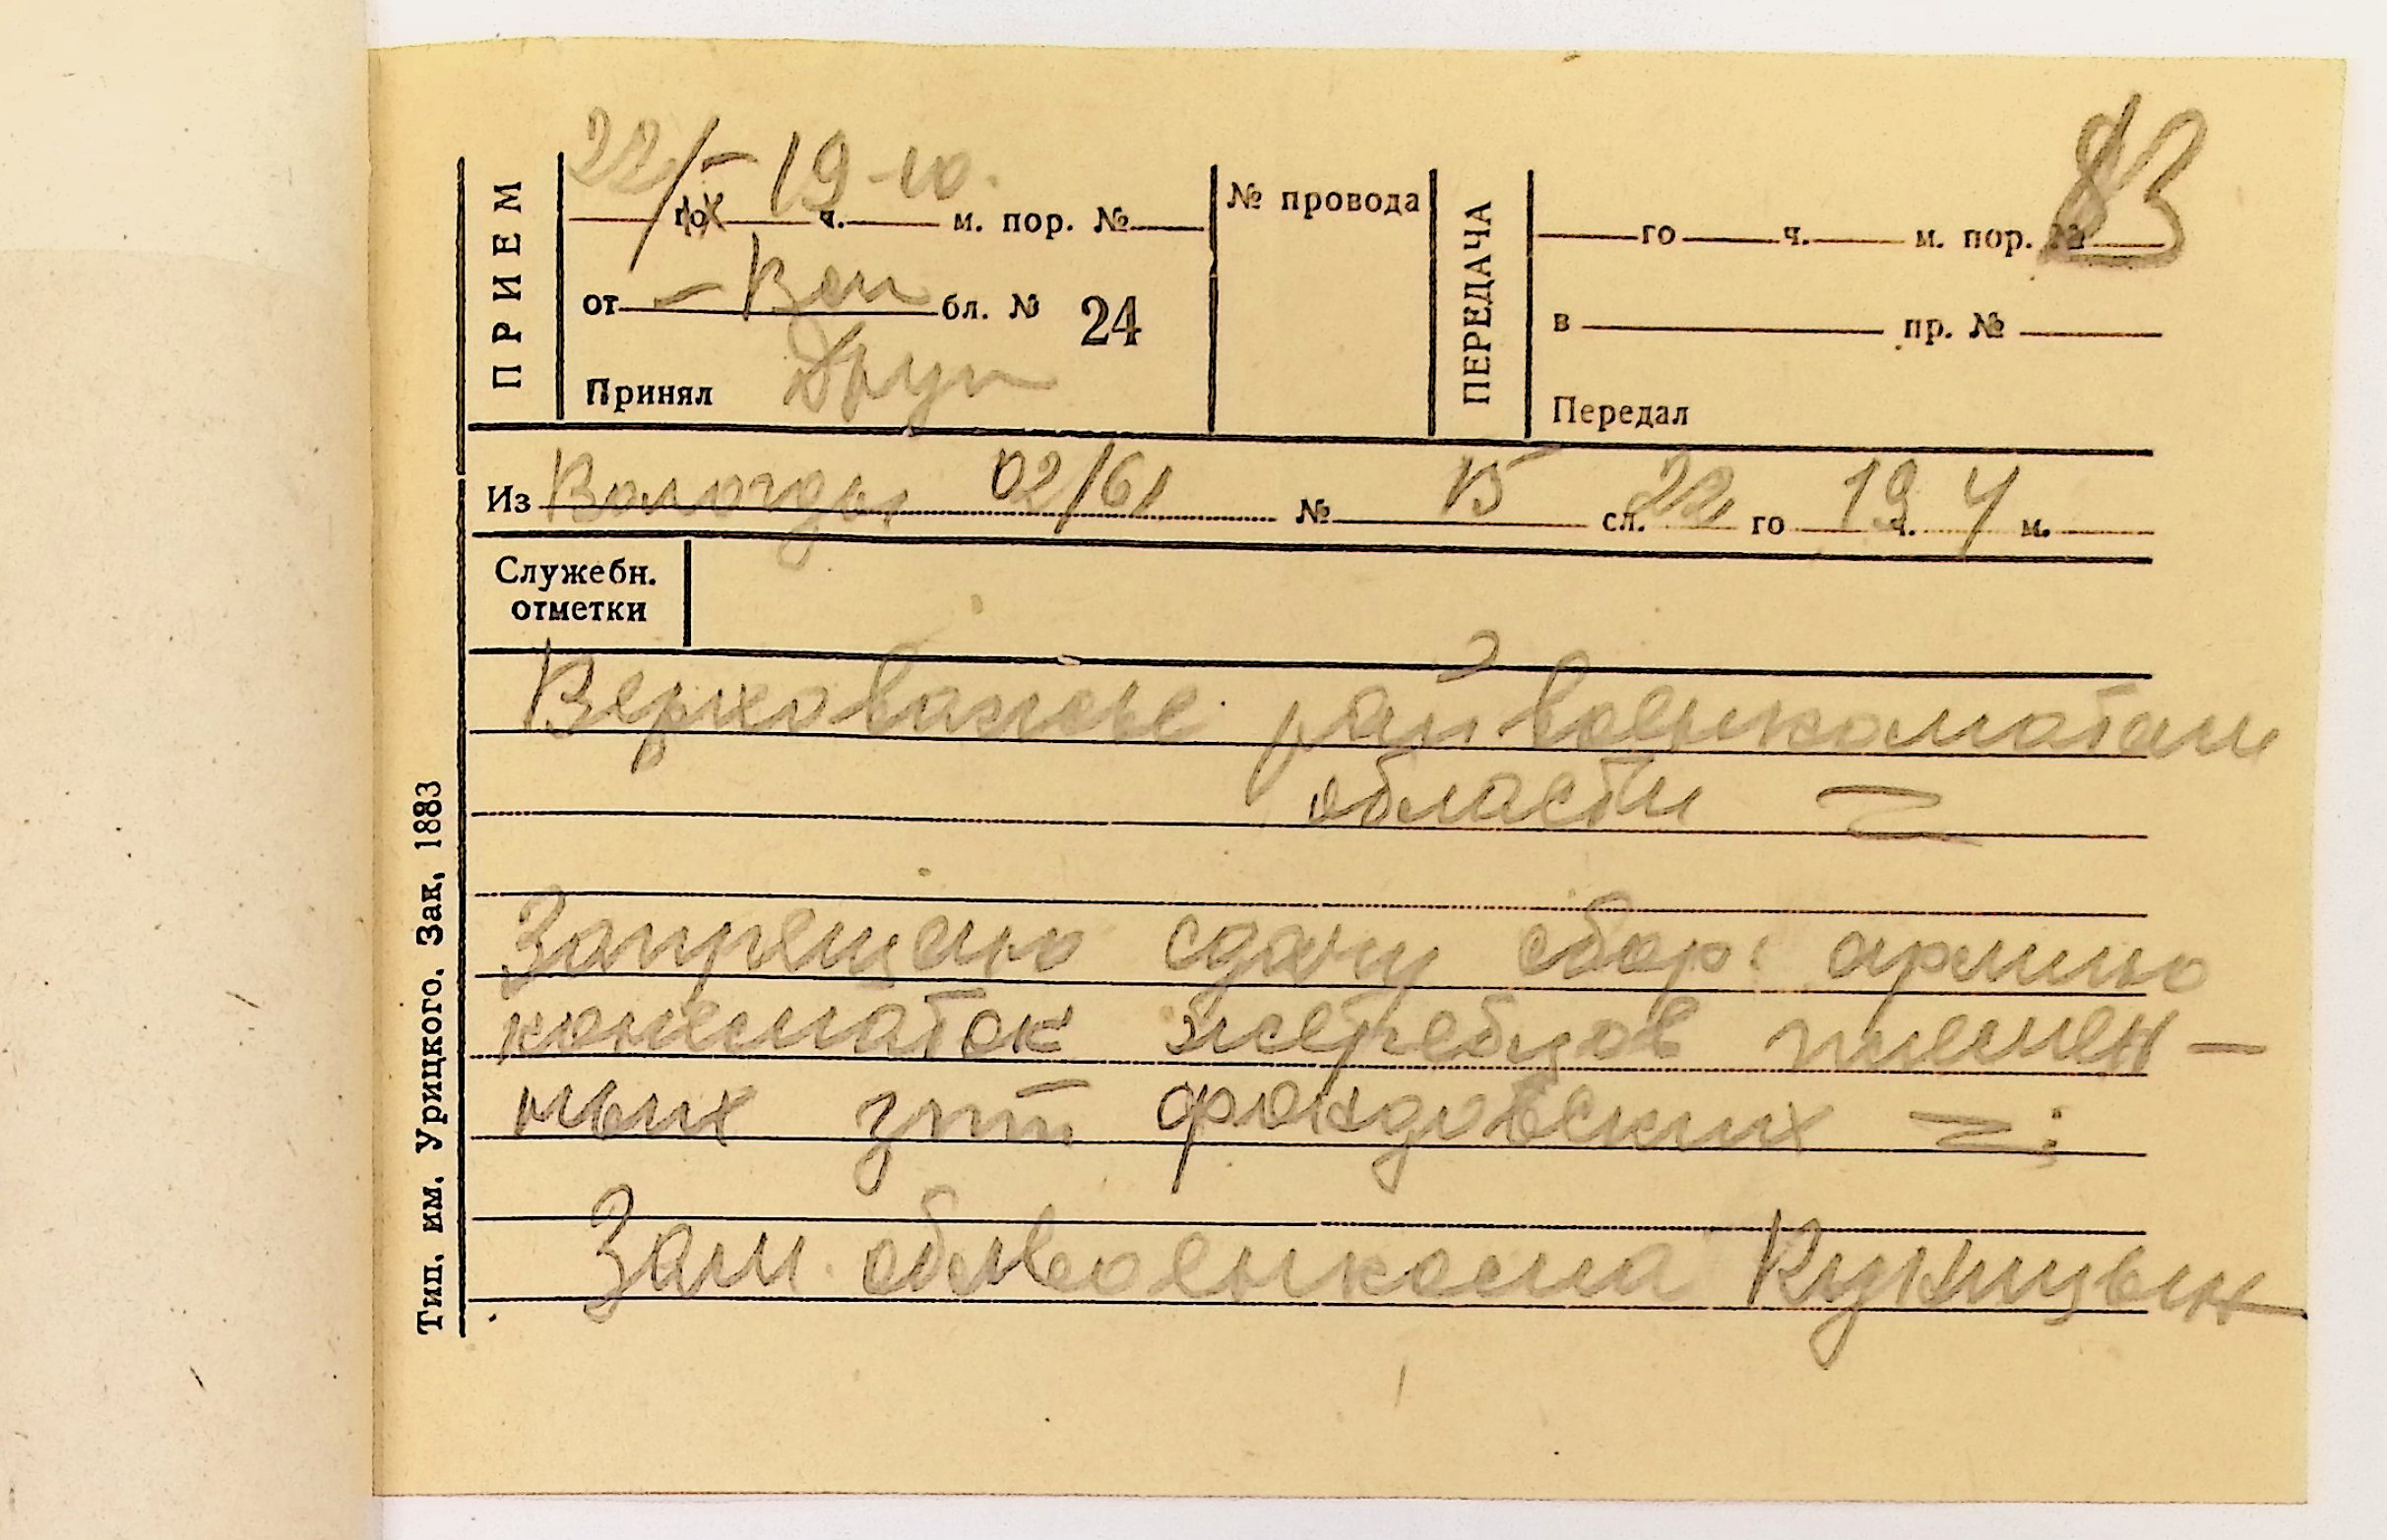 83
22/IX 19-10.
ПРИЕМ
го ч. м. пор. №
№ провода
ПЕРЕДАЧА
го ч. м. пор. №
от – Вел бл. № 24
в пр. №
Принял
Передал
Из Вологды 02/61 № 15 сл. 22 го 19 ч. 4 м.
Служебн.
отметки
Верховажье райвоенкоматам
области =
Запрещаю сдачу сбор: армию
конематок жеребцов племен-
ных зпт фондовских =;
Зам. облвоенкома Куницын
Тип. им. Урицкого. Зак, 1883